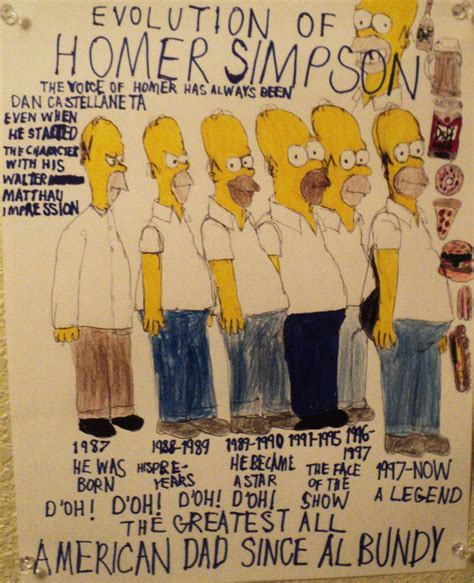 EVOLUTION OF
HOMER SIMPSON
THE VOICE OF HOMER HAS ALWAYS BEEN
DAN CASTELLANETA
EVEN WHEN
HE STARTED
THE CHARACTER
WITH HIS
WALTER
MATTHAU
IMPRESSION
DUFF
1987
HE WAS
BORN
1988-1989
HIS PRE-
YEARS
1989-1990
HE BECAME
A STAR
1991-1995
1996-
1997
THE FACE
OF THE
SHOW
1997-NOW
A LEGEND
D'OH! D'OH! D'OH! D'OH!
THE GREATEST ALL
AMERICAN DAD SINCE AL BUNDY